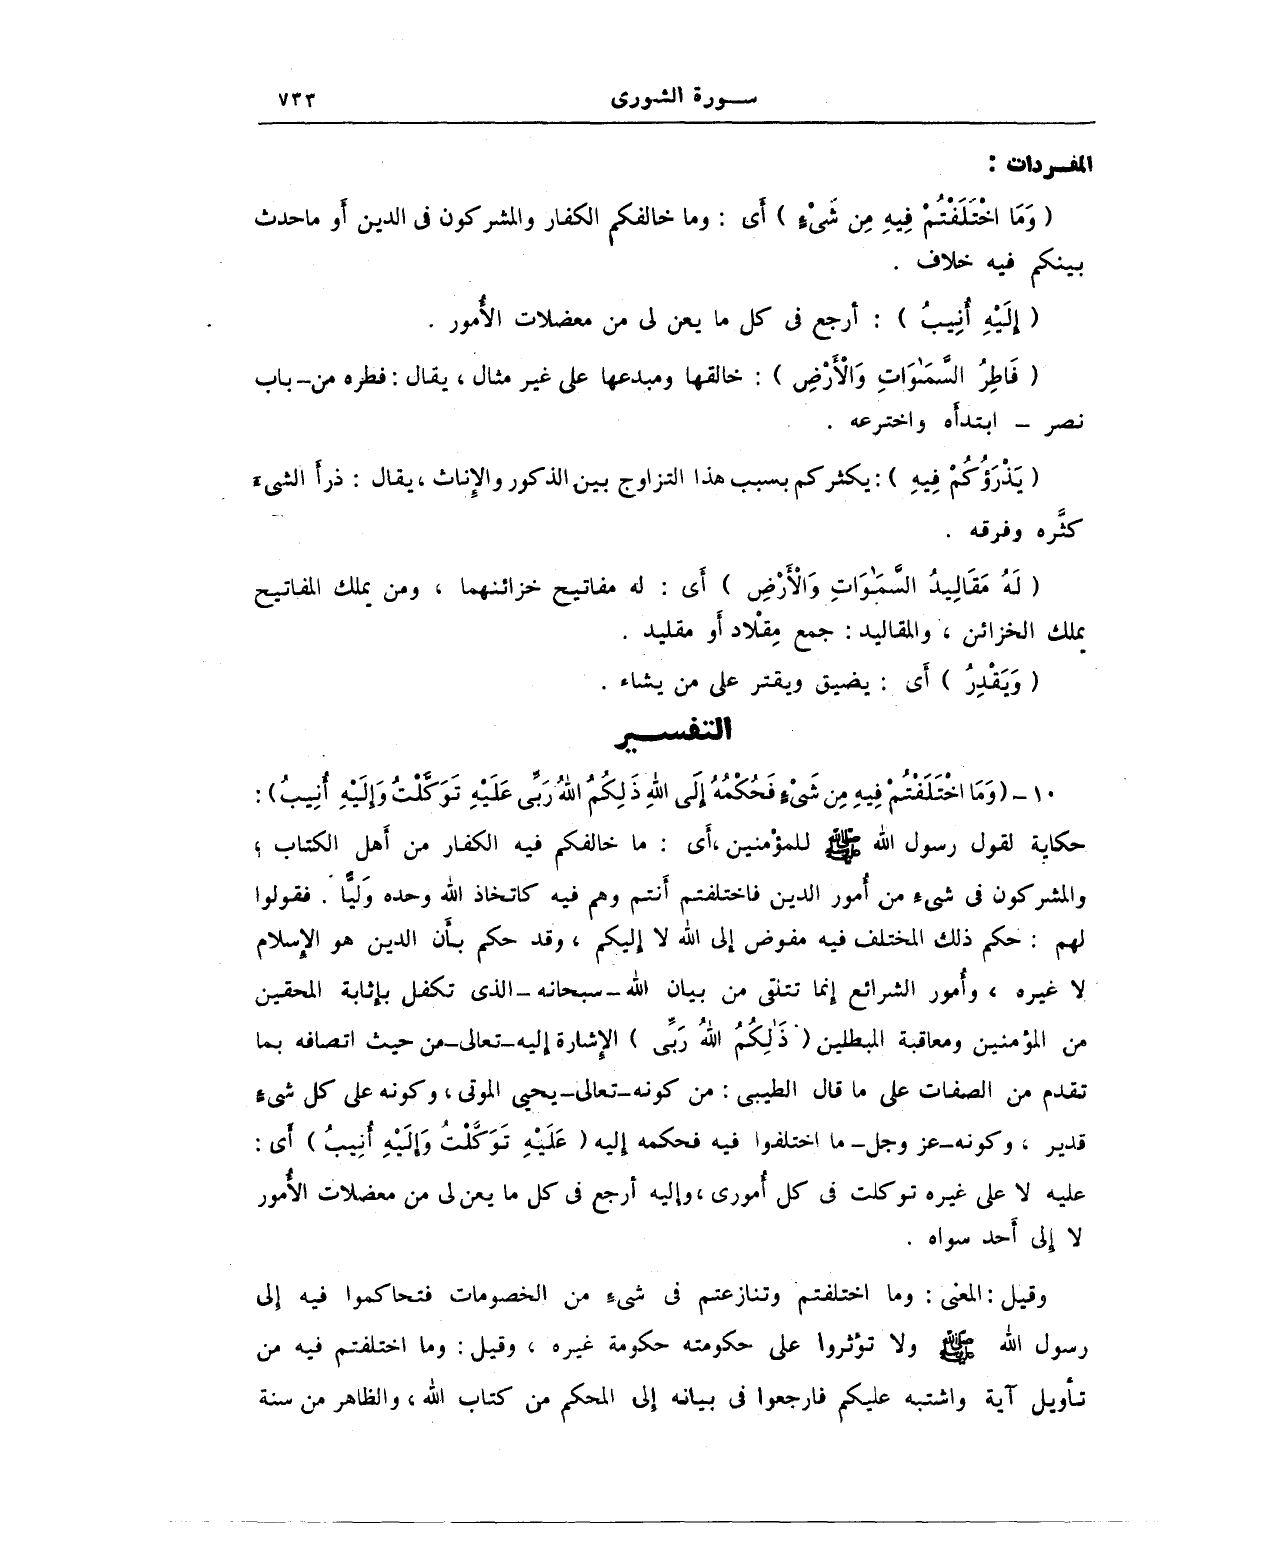 سورة الشورى ٧٣٣
المفردات :
( وَمَا اخْتَلَفْتُمْ فِيهِ مِن شَىْءٍ ) أَى : وما خالفكم الكفار والمشركون فى الدين أَو ماحدث
بينكم فيه خلاف .
( إِلَيْهِ أُنِيبُ ) : أرجع فى كل ما يعن لى من معضلات الأُمور .
( فَاطِرُ السَّمَٰوَاتِ وَالْأَرْضِ ) : خالقها ومبدعها على غير مثال ، يقال : فطره من - باب
نصر - ابتدأَه واخترعه .
( يَذْرَؤُكُمْ فِيهِ ) : يكثركم بسبب هذا التزاوج بين الذكور والإِناث ، يقال : ذرأَ الشىء
كثَّره وفرقه .
( لَهُ مَقَالِيدُ السَّمَٰوَاتِ وَالْأَرْضِ ) أَى : له مفاتيح خزائنهما ، ومن يملك المفاتيح
يملك الخزائن ، والمقاليد : جمع مِقْلاد أَو مقليد .
( وَيَقْدِرُ ) أَى : يضيق ويقتر على من يشاء .
التفسير
١٠ - ( وَمَا اخْتَلَفْتُمْ فِيهِ مِن شَىْءٍ فَحُكْمُهُ إِلَى اللهِ ذَلِكُمُ اللهُ رَبِّى عَلَيْهِ تَوَكَّلْتُ وَإِلَيْهِ أُنِيبُ ) :
حكاية لقول رسول الله ﷺ للمؤْمنين ، أَى : ما خالفكم فيه الكفار من أَهل الكتاب ؛
والمشركون فى شىء من أُمور الدين فاختلفتم أَنتم وهم فيه كاتخاذ الله وحده وَليًّا . فقولوا
لهم : حكم ذلك المختلف فيه مفوض إلى الله لا إليكم ، وقد حكم بأَن الدين هو الإِسلام
لا غيره ، وأُمور الشرائع إنما تتلقى من بيان الله - سبحانه - الذى تكفل بإثابة المحقين
من المؤمنين ومعاقبة المبطلين ( ذَٰلِكُمُ اللهُ رَبِّى ) الإِشارة إليه - تعالى - من حيث اتصافه بما
تقدم من الصفات على ما قال الطيبى : من كونه - تعالى - يحيى الموتى ، وكونه على كل شىء
قدير ، وكونه - عز وجل - ما اختلفوا فيه فحكمه إليه ( عَلَيْهِ تَوَكَّلْتُ وَإِلَيْهِ أُنِيبُ ) أَى :
عليه لا على غيره توكلت فى كل أُمورى ، وإليه أرجع فى كل ما يعن لى من معضلات الأُمور
لا إِلى أَحد سواه .
وقيل : المعنى : وما اختلفتم وتنازعتم فى شىء من الخصومات فتحاكموا فيه إلى
رسول الله ﷺ ولا تؤثروا على حكومته حكومة غيره ، وقيل : وما اختلفتم فيه من
تأويل آية واشتبه عليكم فارجعوا فى بيانه إلى المحكم من كتاب الله ، والظاهر من سنة